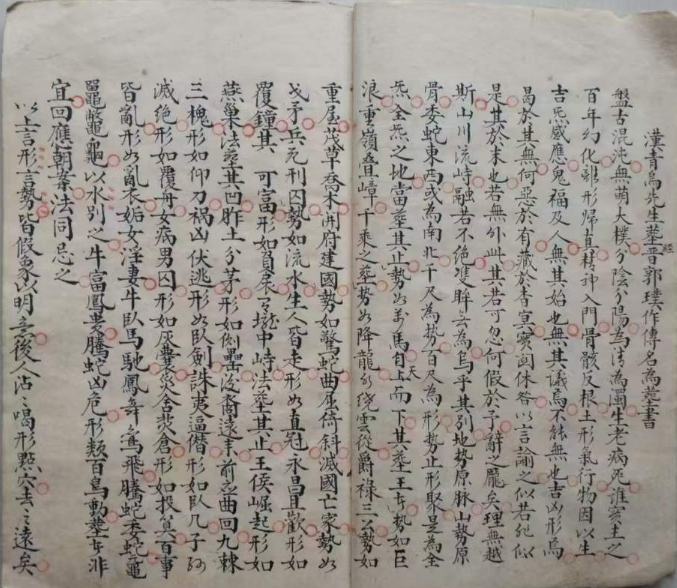 漢青烏先生塟經晋郭璞作傳名為塟書
盤古混沌無萌大樸分陰分陽為清為濁生老病死誰實主之
百年幻化離形歸真精神入門骨骸反根土形氣行物因以生
吉炁感應鬼福及人無其始也無其議焉不能無也吉凶形焉
曷於其無何惡於有藏於杳冥實関休咎以言諭之似若非似
是其於末也若無外此其若可忽何假於予辭之厖矣理無越
斯山川流峙融若不絶雙眸若無烏乎其別地势原脉山勢原
骨委蛇東西或為南北千尺為勢百尺為形势止形聚是為全
炁全炁之地當塟其止勢如萬馬自天而下其塟王者勢如巨
浪重嶺叠嶂千乘之塟势如降龍水繞雲從爵禄三公勢如
重屋茂草喬木開府建國勢如驚蛇曲屈倚斜滅國亡家勢如
戈矛兵死刑囚勢如流水生人皆走形如直冠永昌且歡形如
覆鐘其 可富形如負扆 壠中峙法塟其止王侯崛起形如
燕巢法塟其凹胙土分茅形如側罍後裔遠來前應曲回九棘
三槐形如仰刀禍凶伏逃形如臥劍誅夷逼僭形如臥几子孫
滅絕形如覆舟女病男囚形如灰囊災舍焚倉形如投筭百事
皆亂形如亂衣妬女淫妻牛臥馬馳鳳舞鸞飛騰蛇委蛇黿
鼉鱉龜以水別之牛富鳳貴騰蛇凶危形類百鳥動塟者非
宜回應朝案法同忌之
以上言形言勢皆假象以明之後人沾沾喝形點穴去之遠矣